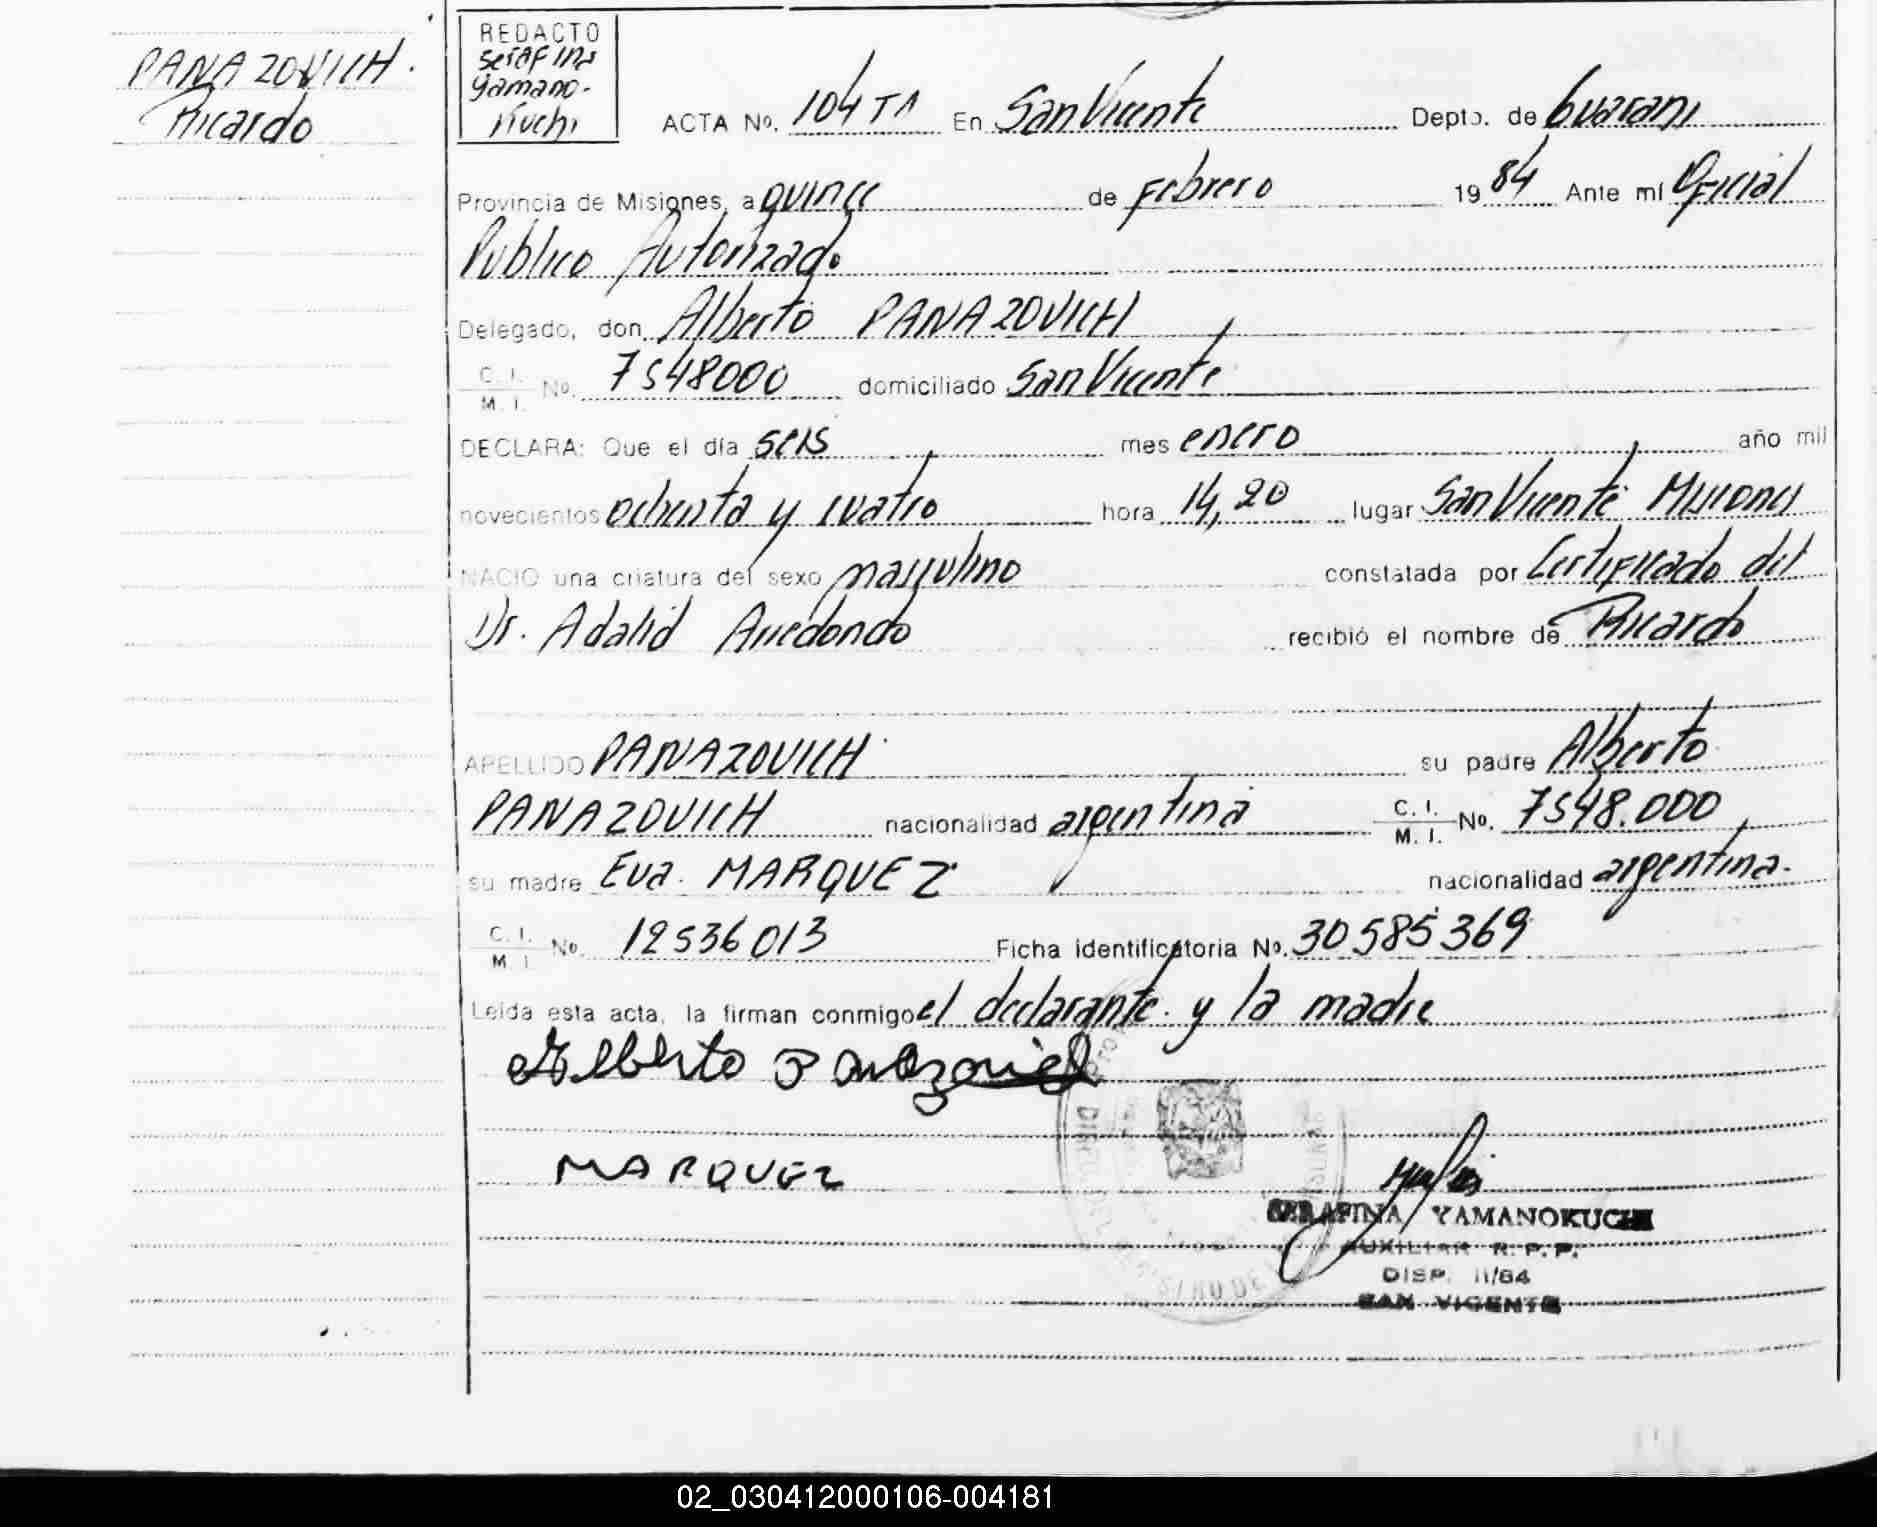 PANAZOVICH.
Ricardo
REDACTO
Serafina
Yamano-
Kuchi
ACTA No. 104 T1 En San Vicente Depto. de Guarani
Provincia de Misiones, a quince de Febrero 1984 Ante mí Oficial
Publico Autorizado
Delegado, don Alberto PANAZOVICH
C. I. / M. I. No. 7548000 domiciliado San Vicente
DECLARA: Que el día seis mes enero año mil
novecientos ochenta y cuatro hora 14,20 lugar San Vicente Misiones
NACIO una criatura del sexo masculino constatada por Certificado del
Dr. Adalid Arredondo recibió el nombre de Ricardo
APELLIDO PANAZOVICH su padre Alberto
PANAZOVICH nacionalidad argentina C. I. / M. I. No. 7548.000
su madre Eva. MARQUEZ nacionalidad argentina.
C. I. / M. I. No. 12536013 Ficha identificatoria No. 30585369
Leída esta acta, la firman conmigo el declarante. y la madre
Alberto Panazovich
MARQUEZ
SERAFINA YAMANOKUCHI
AUXILIAR R. P. P.
DISP. 11/84
SAN VICENTE
02_030412000106-004181